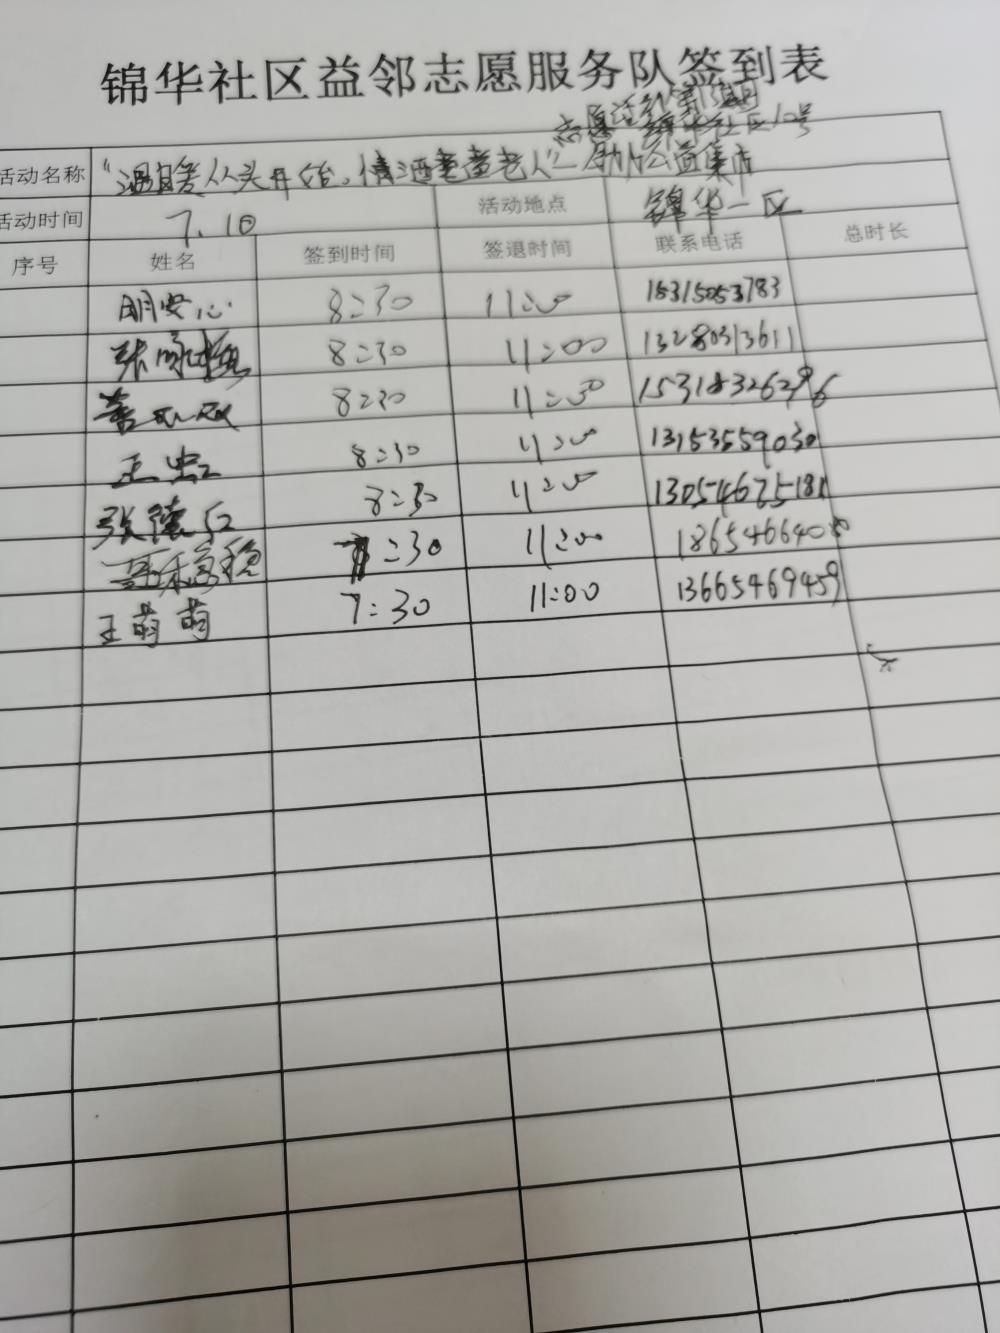 锦华社区益邻志愿服务队签到表
志愿活动第 期
锦华社区12号
活动名称 "温暖从头开始,情洒耄耋老人" 公益集市
活动时间 7.10 活动地点 锦华一区
序号 姓名 签到时间 签退时间 联系电话 总时长
明安心 8:30 11:00 15315053783
张 梅 8:30 11:00 13280313611
8:30 11:30 15318326296
王 8:30 11:00 13153559030
张德红 8:30 11:00 13054675181
7:30 11:00
王萌萌 7:30 11:00 13665469459